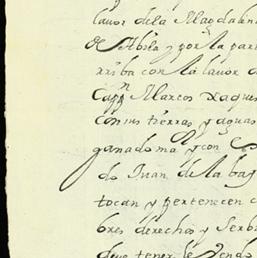 lauor dela Magdalena
de Abila y por la par
rriba con la lauor d
Capp.n Marcos xaques
con sus tierras y aguas
ganado ma y con
do Juan de la ba
tocan y pertenecen
bres derechos y serb
deue tener le Vendo